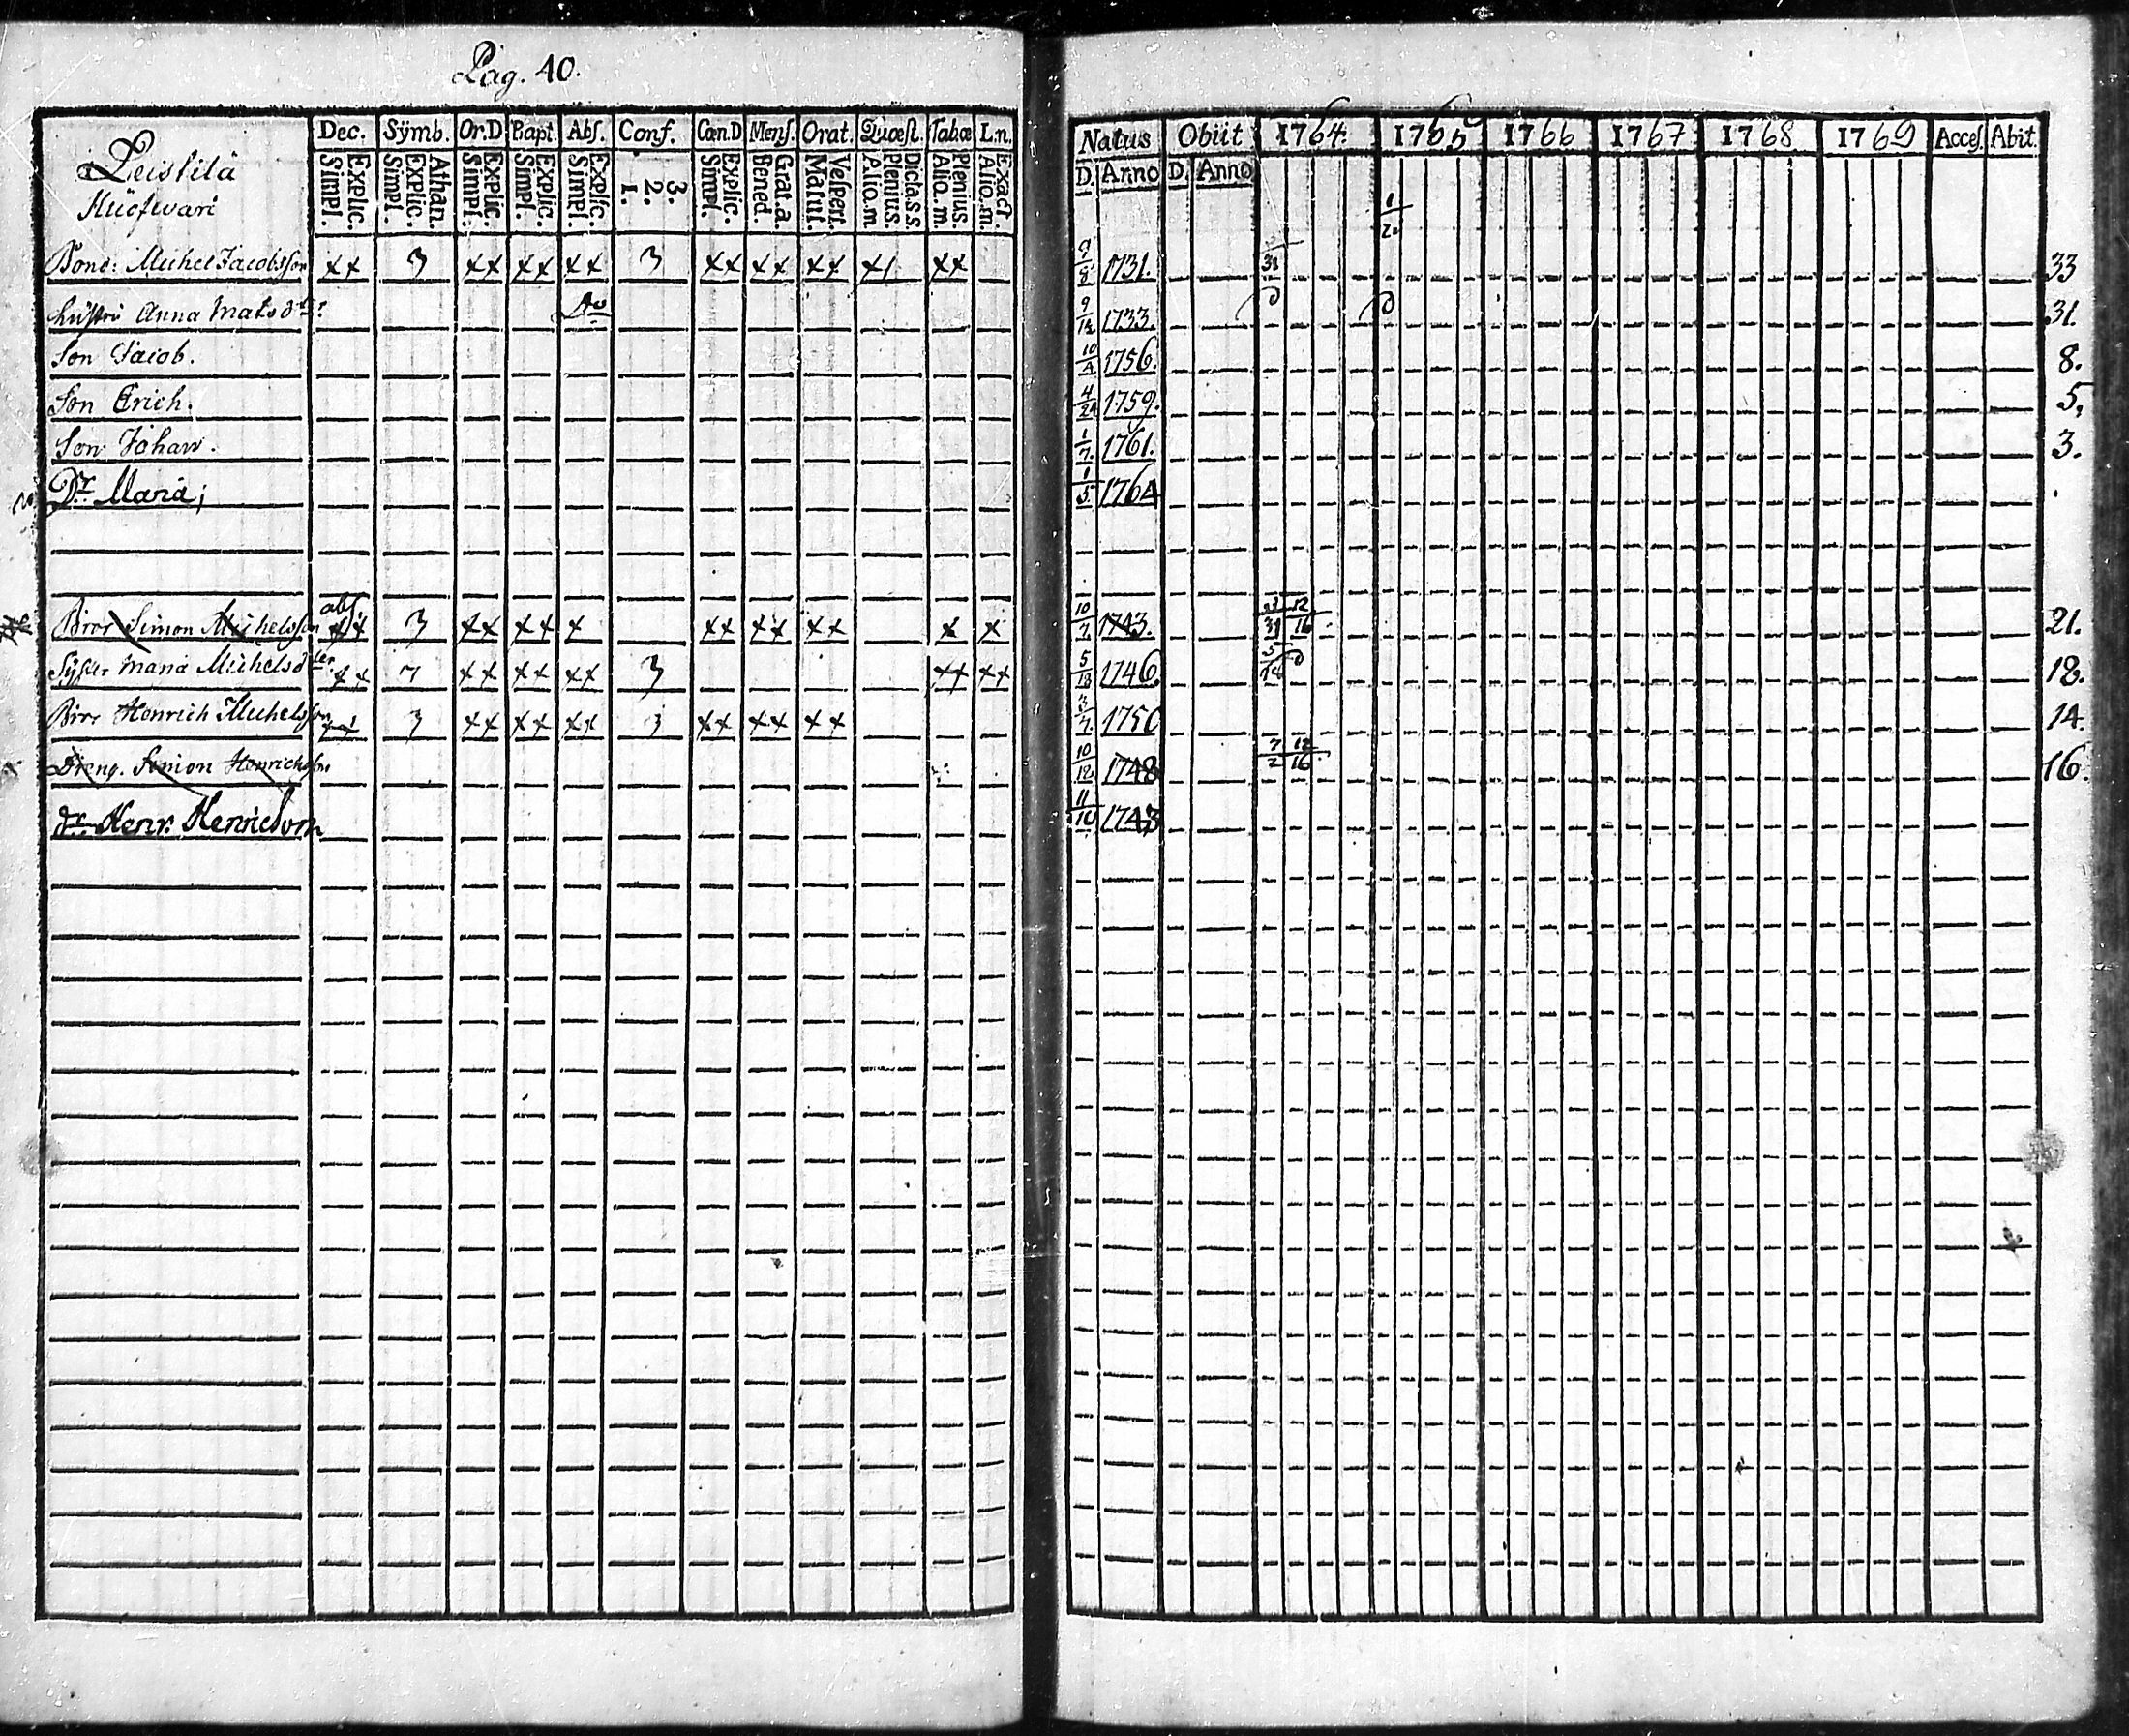 Pag. 40.
Dec. Sÿmb. Or.D Bapt. Abſ. Conf. Cœn.D Menſ. Orat. Quæſt. Tabœ L.n. Natus Obiit 1764. 1765 1766 1767 1768. 1769 Acceſ. Abit.
Explic. Simpl. Athan. Explic. Simpl. Explic. Simpl. Explic. Simpl. Explic. Simpl. 3. 2. 1. Explic. Simpl. Grat.a. Bened. Veſpert. Matut. Dicta.s.s. Plenius. Alio.m Plenius. Alio.m. Exact. Alio.m. D. Anno D. Anno
Leistilä
1/2
Bond: Michel Jacobsson xx 3 xx xx xx 3 xx xx xx x xx 9/8 1731. 33
hustru Anna Matsdtr Do 9/12 1733. 31.
Son Jacob. 10/4 1756. 8.
Son Erich. 4/24 1759. 5,
Son Johan. 1/7 1761. 3.
Dr Maria; 1/5 1764
abſ.
Bror Simon Michelsson xx 3 xx xx x xx xx xx x x 10/7 1743. 12/16 21.
Syster Maria Michelsdter xx 3 xx xx xx 3 xx xx 5/18 1746. 18.
Bror Henrich Michelsson xx 3 xx xx xx 3 xx xx xx 3/7. 1750 14.
Dreng. Simon Henrichsson 10/12 1748 7/2 12/16 16.
dr Henr. Henricsson 11/10 1743